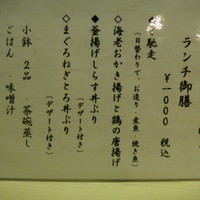 ランチ御膳
￥1000 税込
馳走
(日替わりで、お造り 煮魚・焼き魚)
◇海老おかき揚げと鶏の唐揚げ
◆釜揚げしらす丼ぶり
(デザート付き)
◇まぐろねぎとろ丼ぶり
(デザート付き)
小鉢 2品 ・茶碗蒸し
ごはん ・味噌汁